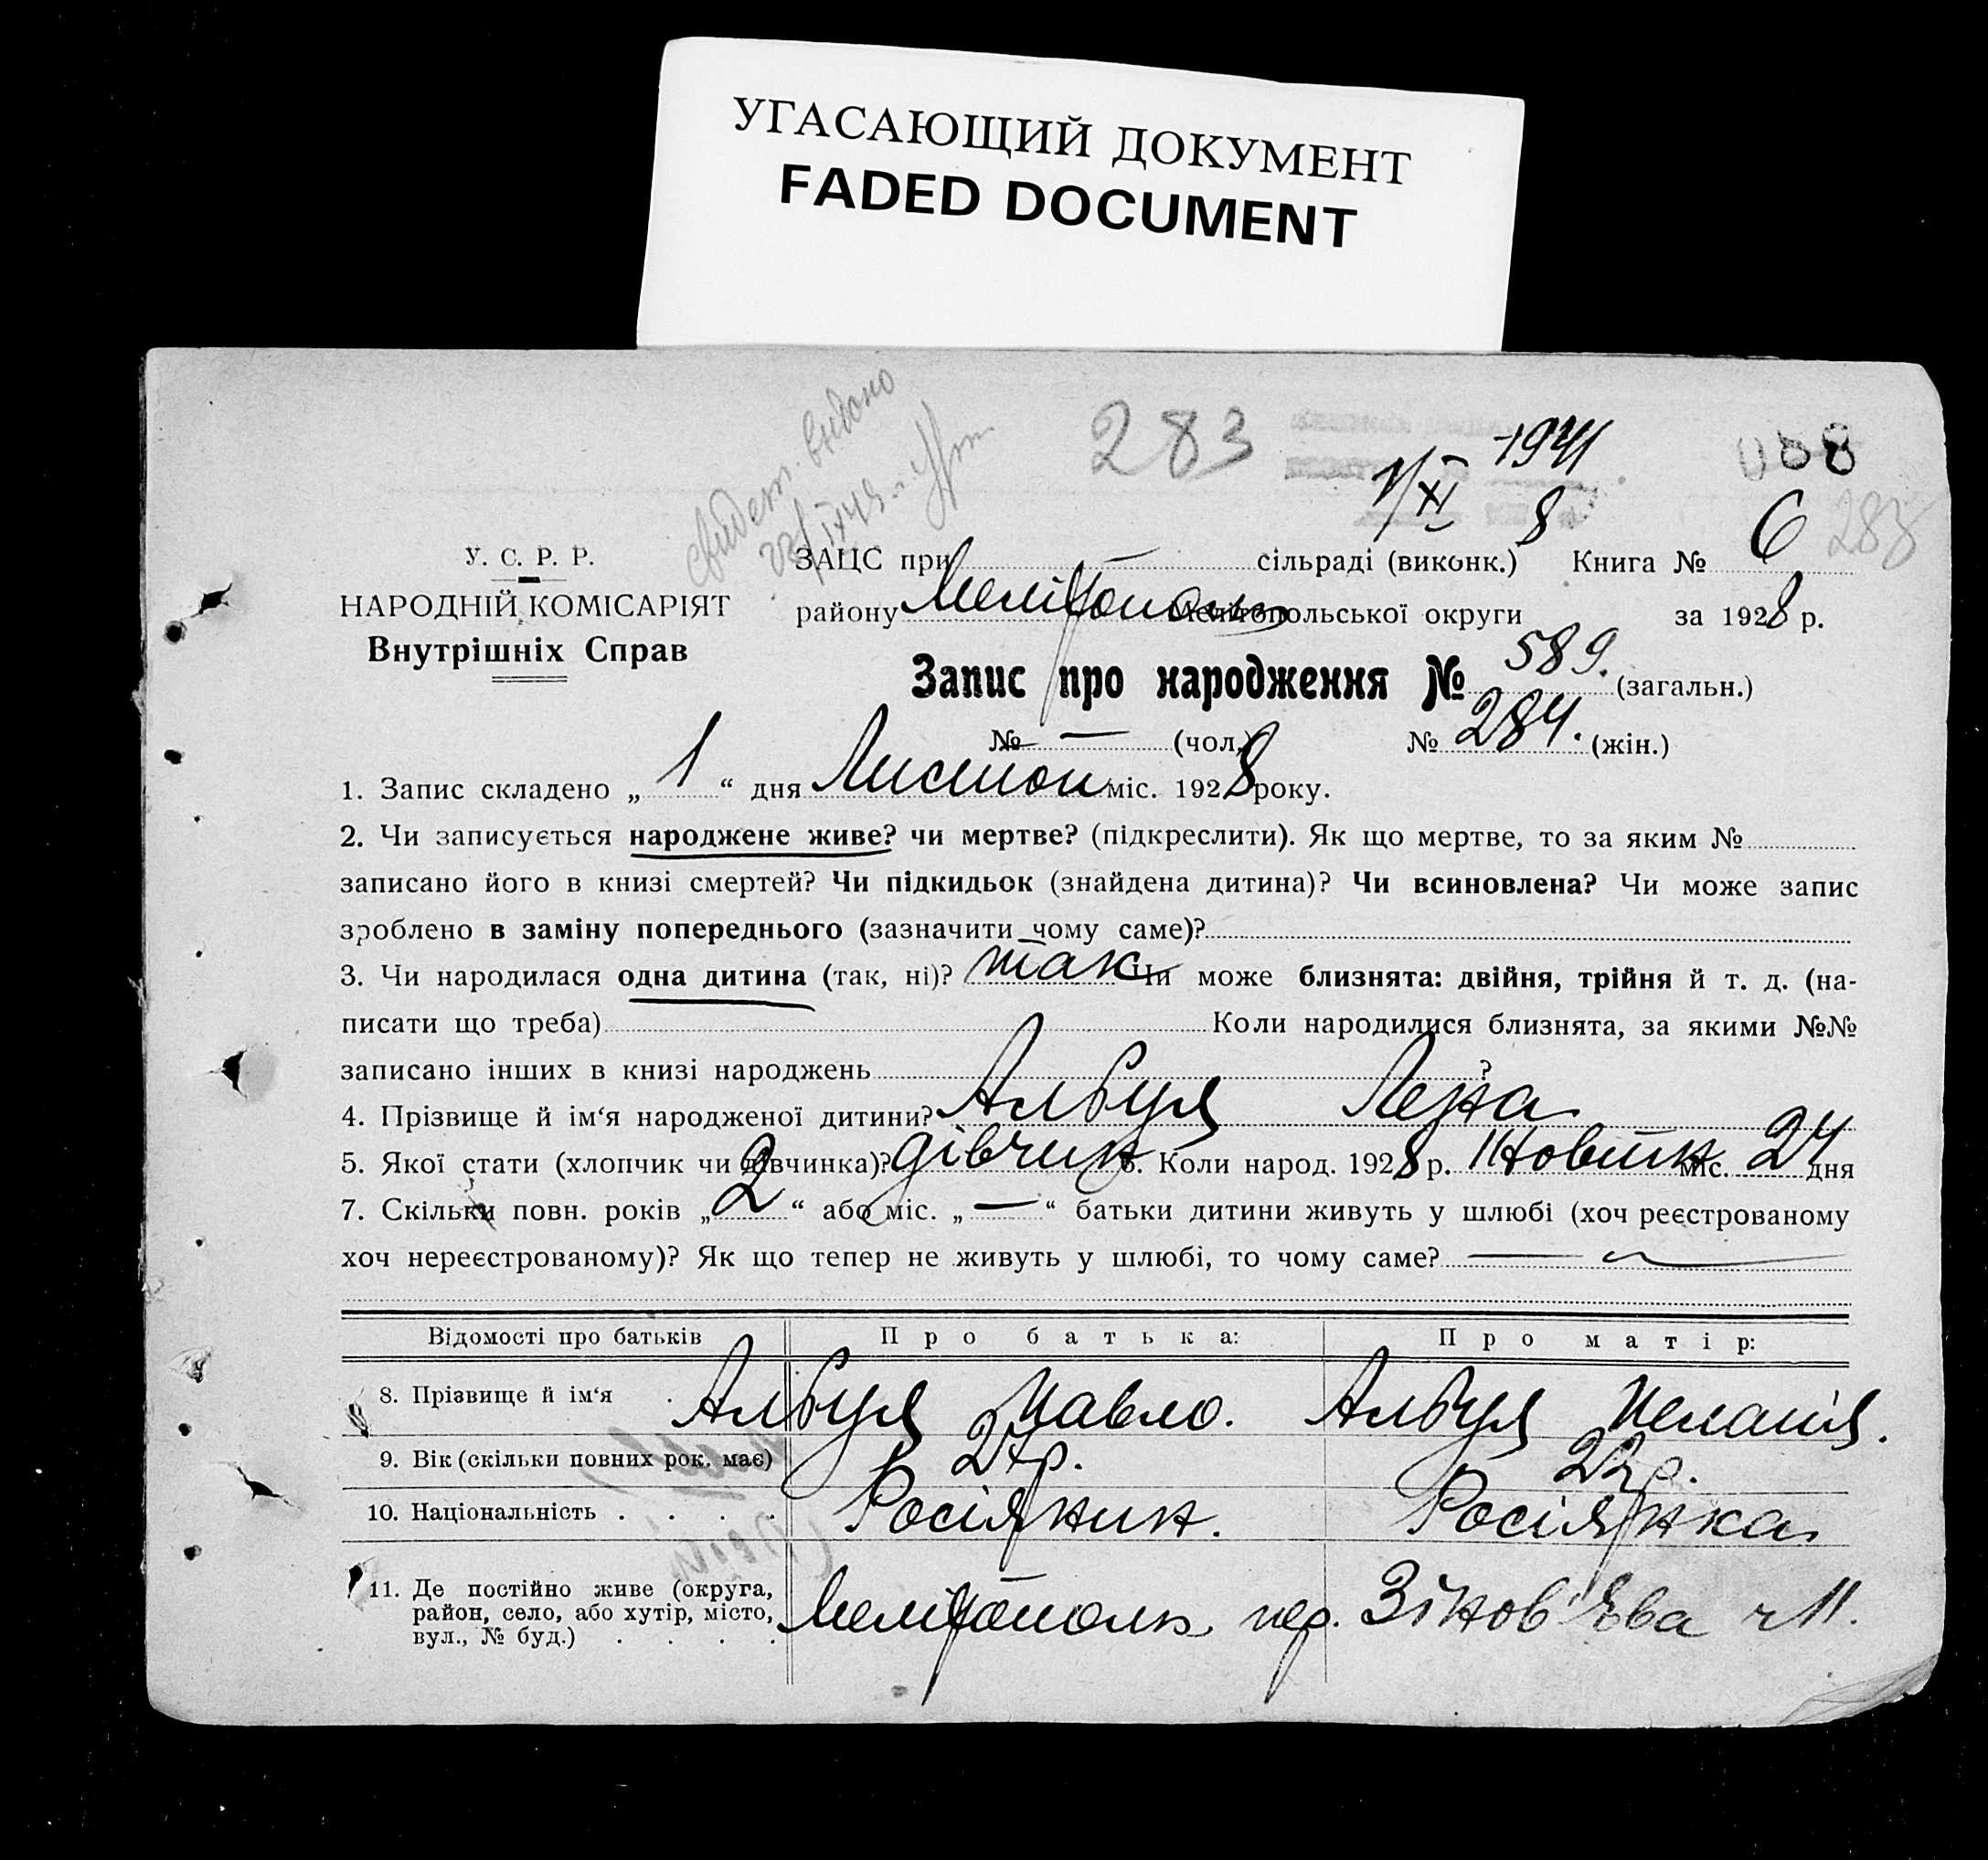 УГАСАЮЩИЙ ДОКУМЕНТ
FADED DOCUMENT
свидет. видано
283
1941
1/XI 8
088
288
У. С. Р. Р.
НАРОДНІЙ КОМІСАРІЯТ
Внутрішніх Справ
ЗАЦС при сільраді (виконк.) Книга № 6
району Мелітополь Мелітопольської округи за 1928 р.
Запис про народження № 589. (загальн.)
№ — (чол.) № 284. (жін.)
1. Запис складено „ 1 “ дня Листоп міс. 1928 року.
2. Чи записується народжене живе? чи мертве? (підкреслити). Як що мертве, то за яким №
записано його в книзі смертей? Чи підкидьок (знайдена дитина)? Чи всиновлена? Чи може запис
зроблено в заміну попереднього (зазначити чому саме)?
3. Чи народилася одна дитина (так, ні)? так Чи може близнята: двійня, трійня й т. д. (на-
писати що треба) Коли народилися близнята, за якими №№
записано інших в книзі народжень ?
4. Прізвище й ім‘я народженої дитини? Албул Лена
5. Якої стати (хлопчик чи дівчинка)? дівчин 6. Коли народ. 1928 р. Жовтн міс. 24 дня
7. Скільки повн. років „ 2 “ або міс. „ — “ батьки дитини живуть у шлюбі (хоч реєстрованому
хоч нереєстрованому)? Як що тепер не живуть у шлюбі, то чому саме? —
Відомості про батьків Про батька: Про матір:
8. Прізвище й ім‘я . Албул Павло. Албул Пелагія.
9. Вік (скільки повних рок. має) 24 р. 22 р.
10. Національність . . . . Росіянин. Росіянка
11. Де постійно живе (округа,
район, село, або хутір, місто,
вул., № буд.) . . . . Мелітополь пер. Зінов'єва ч 11.